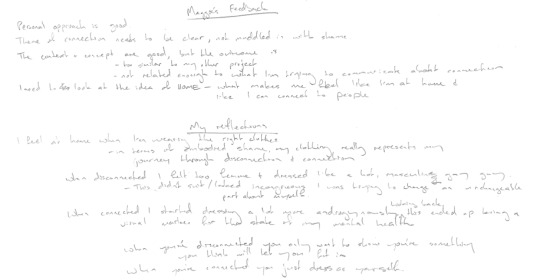 Maggie's Feedback
Personal approach is good
Theme of connection needs to be clear, not muddled in with shame
The content + concept are good, but the outcome is
- too similar to my other project
- not related enough to what I'm trying to communicate about connection
I need to look at the idea of HOME - what makes me feel like I'm at home +
like I can connect to people
My reflections
I feel at home when I'm wearing the right clothes
- in terms of embodied shame, my clothing really represents my
journey through disconnection + connection
When disconnected I felt too femme + dressed like a lad, masculine gym guy
- This didn't suit / incongruency I was trying to change an unchangeable
part about myself
When connected I started dressing a lot more androgynously,
Looking back, this ended up being a
visual marker for the state of my mental health
When you're disconnected you only want to show you're something
you think will let you fit in
When you're connected you just dress as yourself.